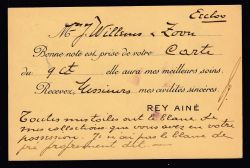 Eecloo
Mrs J. Willems & Zoon
Bonne note est prise de votre Carte
du 9 ct elle aura mes meilleurs soins.
Recevez, Messieurs mes civilités sincères.
REY AINÉ
Toutes mes toiles ont le blanc de
mes collections que vous avez en votre
possession. Je n'ai pas le blanc de
pré proprement dit